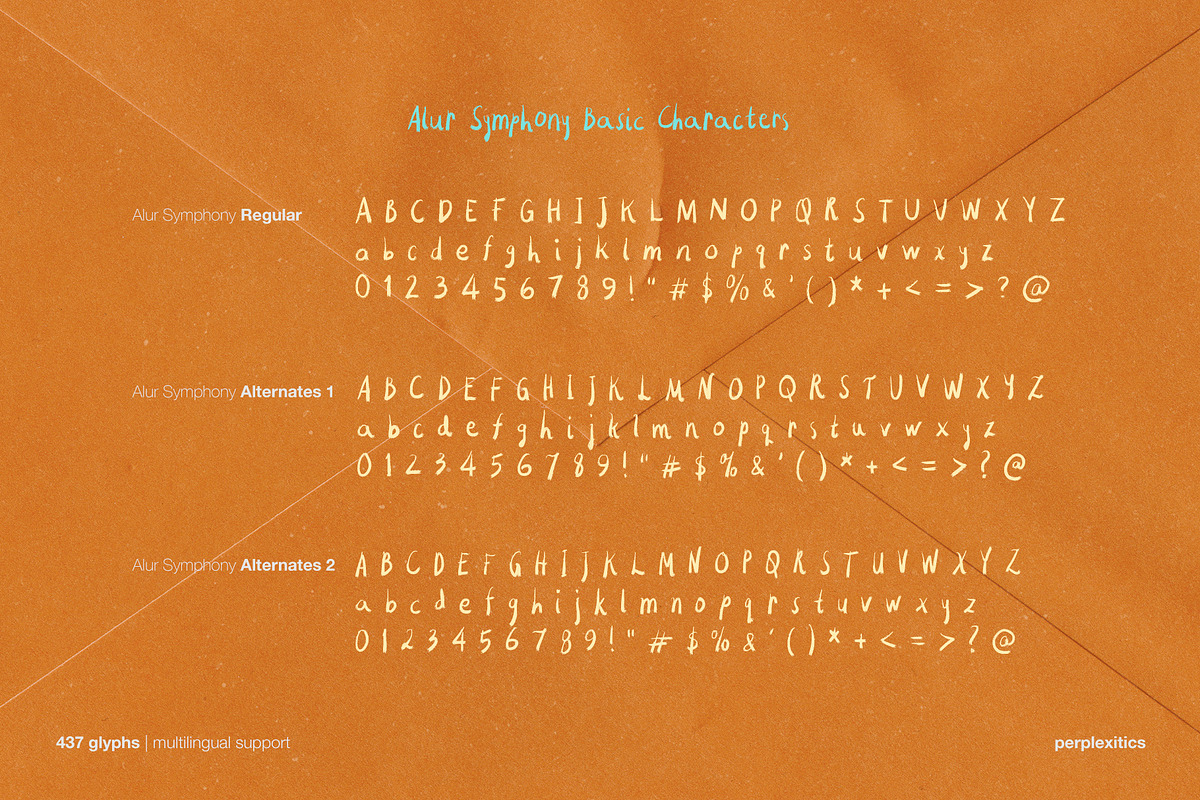 Alur Symphony Basic Characters
Alur Symphony Regular
A B C D E F G H I J K L M N O P Q R S T U V W X Y Z
a b c d e f g h i j k l m n o p q r s t u v w x y z
0 1 2 3 4 5 6 7 8 9 ! " # $ % & ' ( ) * + < = > ? @
Alur Symphony Alternates 1
A B C D E F G H I J K L M N O P Q R S T U V W X Y Z
a b c d e f g h i j k l m n o p q r s t u v w x y z
0 1 2 3 4 5 6 7 8 9 ! " # $ % & ' ( ) * + < = > ? @
Alur Symphony Alternates 2
A B C D E F G H I J K L M N O P Q R S T U V W X Y Z
a b c d e f g h i j k l m n o p q r s t u v w x y z
0 1 2 3 4 5 6 7 8 9 ! " # $ % & ' ( ) * + < = > ? @
437 glyphs | multilingual support
perplexitics